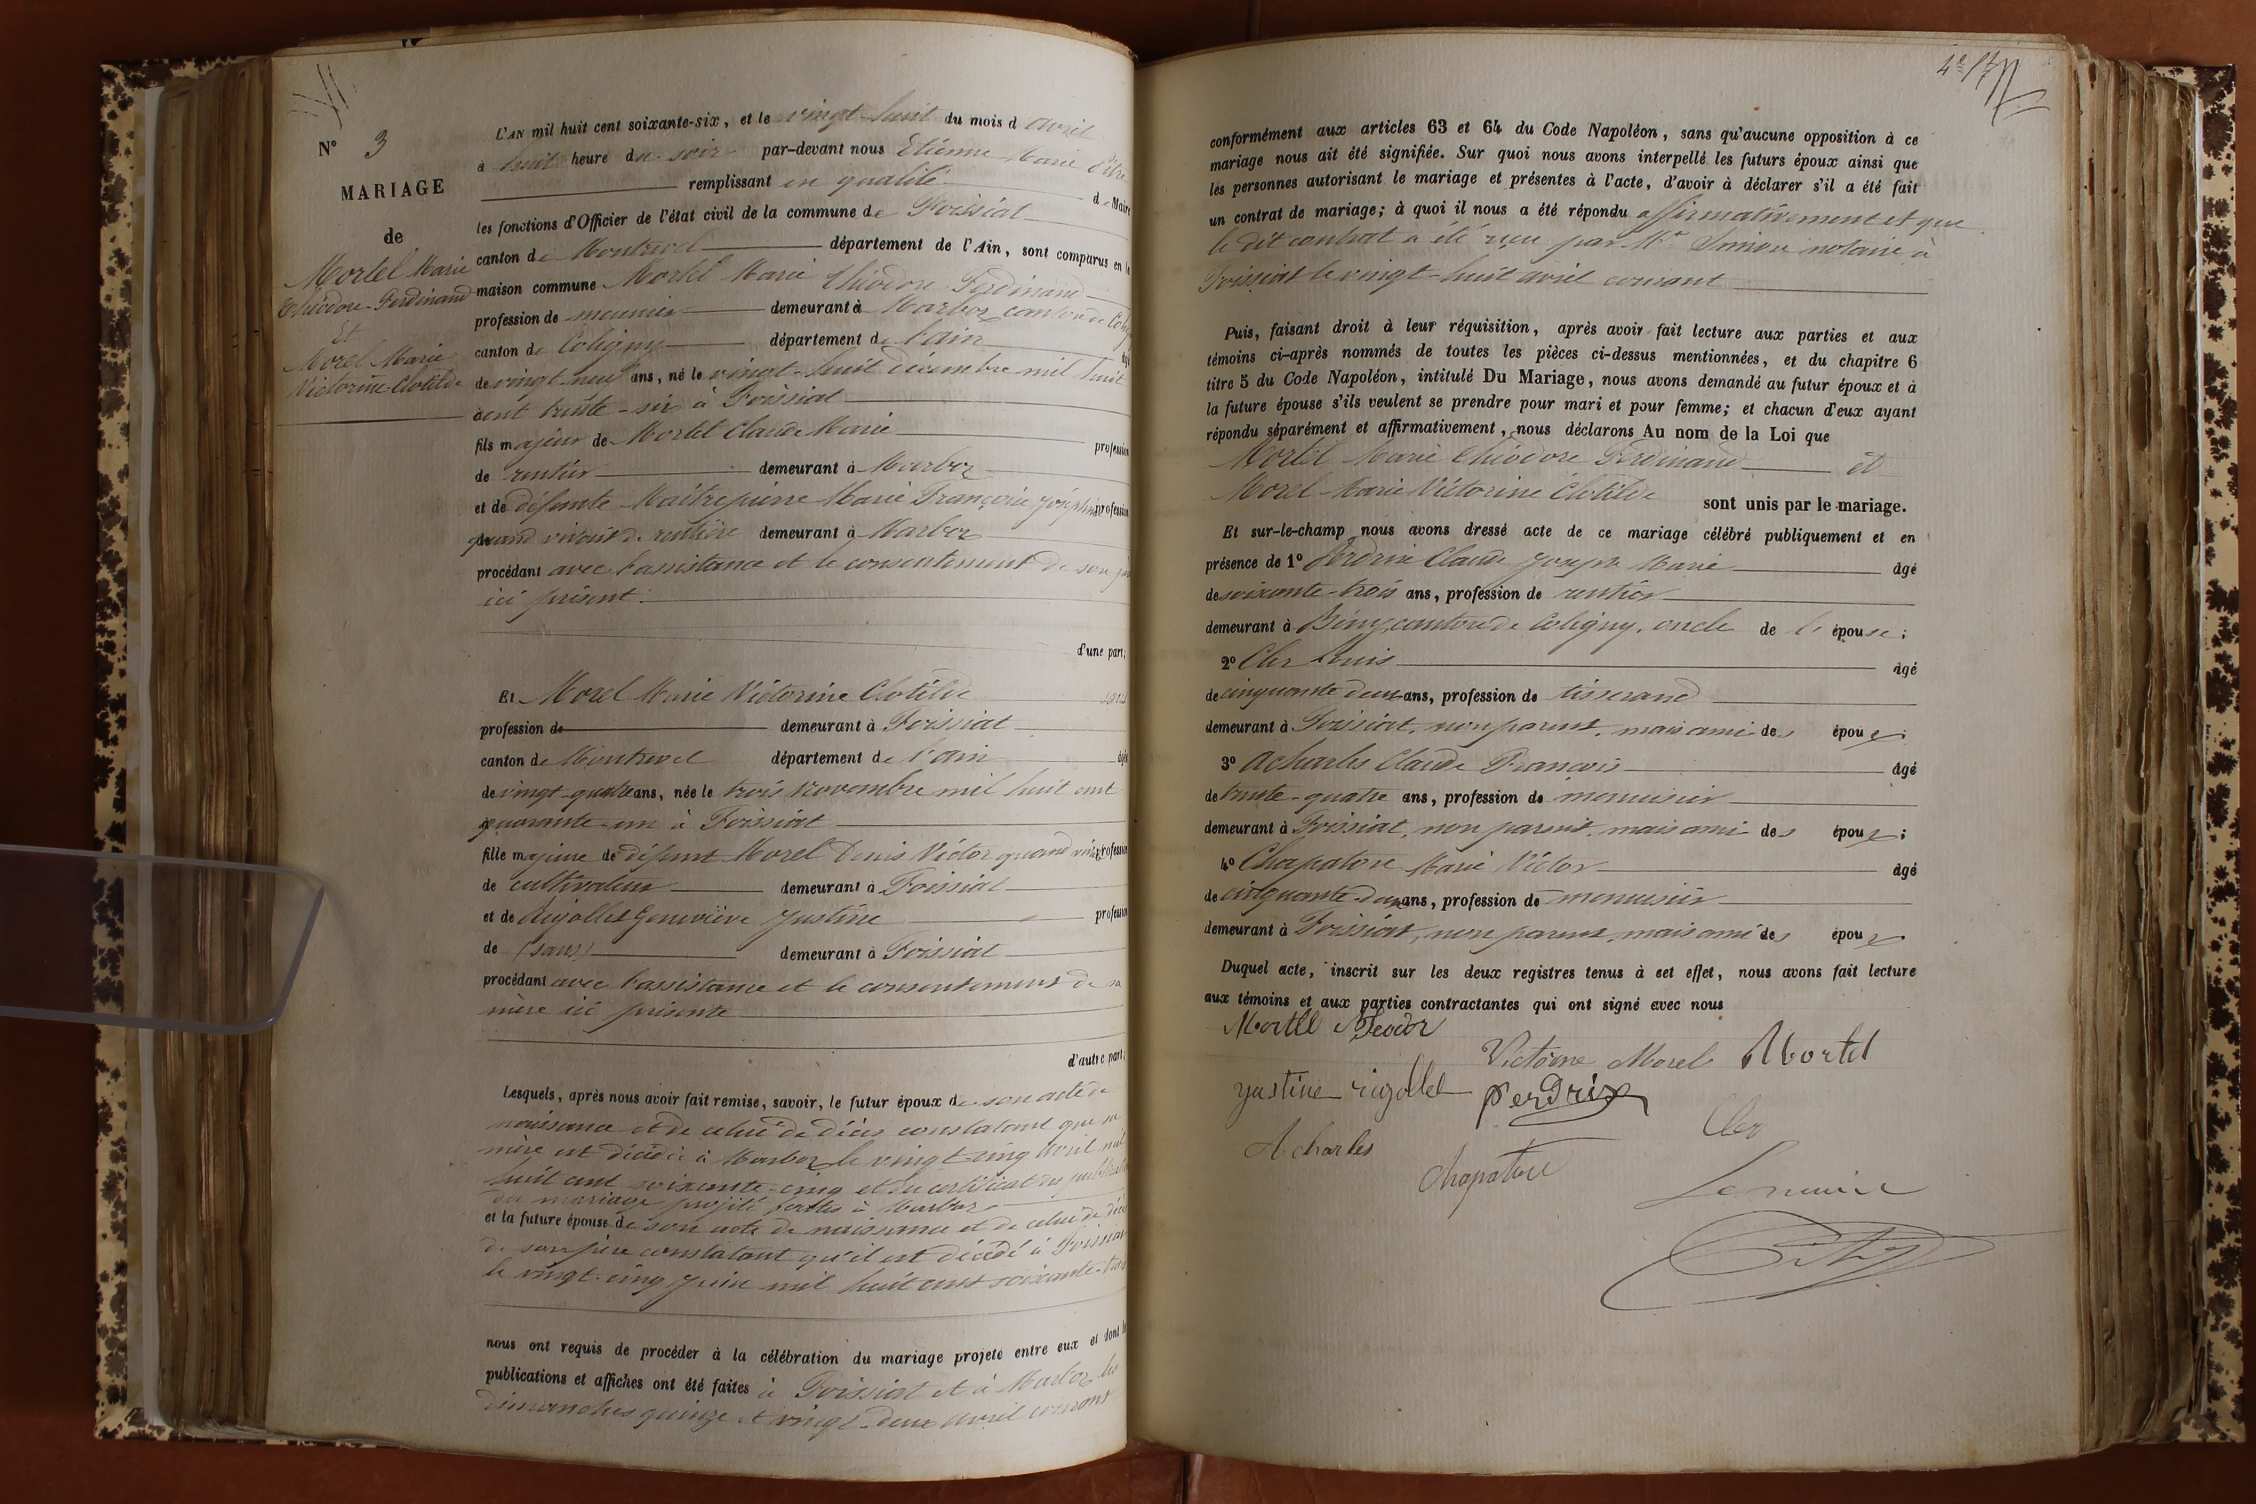 N° 3
MARIAGE
de
Mortel Marie
Théodore-Ferdinand
Et
Morel Marie
Victorine-Clotilde
L'AN mil huit cent soixante-six, et le vingt-huit du mois d avril
à huit heure du soir par-devant nous Etienne Marie
remplissant en qualité d Maire
les fonctions d'Officier de l'état civil de la commune de Foissiat
canton de Montrevel département de l'Ain, sont comparus en la
maison commune Mortel Marie Théodore Ferdinand
profession de meunier demeurant à Marboz canton de
canton de Coligny département de l'ain âgé
de vingt-neuf ans, né le vingt-huit décembre mil huit
cent trente-six à Foissiat
fils majeur de Mortel Claude Marie profession
de rentier demeurant à Marboz
et de défunte Maitrepierre Marie Françoise Joséphine profession
quand vivait de rentière demeurant à Marboz
procédant avec l'assistance et le consentement de son père
ici présent.
d'une part;
Et Morel Marie Victorine Clotilde sans
profession de demeurant à Foissiat
canton de Montrevel département de l'ain âgée
de vingt-quatre ans, née le trois novembre mil huit cent
quarante-un à Foissiat
fille majeure de défunt Morel Denis Victor quand vivait profession
de cultivateur demeurant à Foissiat
et de Rigollet Geneviève Justine profession
de (sans) demeurant à Foissiat
procédant avec l'assistance et le consentement de sa
mère ici présente
d'autre part;
Lesquels, après nous avoir fait remise, savoir, le futur époux de son acte de
naissance et de celui de décès constatant que sa
mère est décédée à Marboz le vingt-cinq avril mil
huit cent soixante-cinq et du certificat des publications
du mariage projeté faites à Marboz
et la future épouse de son acte de naissance et de celui de décès
de son père constatant qu'il est décédé à Foissiat
le vingt-cinq juin mil huit cent soixante-trois
nous ont requis de procéder à la célébration du mariage projeté entre eux et dont les
publications et affiches ont été faites à Foissiat et à Marboz les
dimanches quinze et vingt-deux avril courant
conformément aux articles 63 et 64 du Code Napoléon, sans qu'aucune opposition à ce
mariage nous ait été signifiée. Sur quoi nous avons interpellé les futurs époux ainsi que
les personnes autorisant le mariage et présentes à l'acte, d'avoir à déclarer s'il a été fait
un contrat de mariage; à quoi il nous a été répondu affirmativement et que
le dit contrat a été reçu par Me notaire à
Foissiat le vingt-huit avril courant
Puis, faisant droit à leur réquisition, après avoir fait lecture aux parties et aux
témoins ci-après nommés de toutes les pièces ci-dessus mentionnées, et du chapitre 6
titre 5 du Code Napoléon, intitulé Du Mariage, nous avons demandé au futur époux et à
la future épouse s'ils veulent se prendre pour mari et pour femme; et chacun d'eux ayant
répondu séparément et affirmativement, nous déclarons Au nom de la Loi que
Mortel Marie Théodore Ferdinand et
Morel Marie Victorine Clotilde sont unis par le mariage.
Et sur-le-champ nous avons dressé acte de ce mariage célébré publiquement et en
présence de 1° Perdrix Claude Joseph Marie âgé
de soixante-trois ans, profession de rentier
demeurant à Bény canton de Coligny, oncle de l' épouse;
2° Cler Louis âgé
de cinquante deux ans, profession de tisserand
demeurant à Foissiat, non parent, mais ami des époux;
3° Acharles Claude François âgé
de trente-quatre ans, profession de menuisier
demeurant à Foissiat, non parent, mais ami des époux;
4° Chapatore Marie Victor âgé
de cinquante-deux ans, profession de menuisier
demeurant à Foissiat, non parent, mais ami des époux
Duquel acte, inscrit sur les deux registres tenus à cet effet, nous avons fait lecture
aux témoins et aux parties contractantes qui ont signé avec nous
Mortel
Victorine Morel Mortel
Justine rigollet Perdrix
Cler
Acharles
Le maire